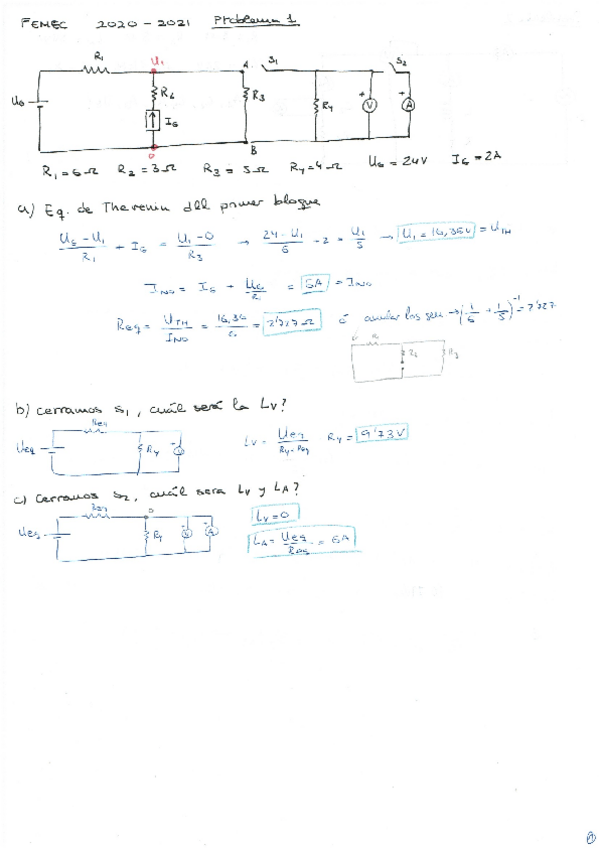 FEMEC 2020-2021 Problema 1
R₁ U₁ A S₁ S₂
U₆ R₂ I₆ R₃ R₄ V A
0 B
R₁ = 6Ω R₂ = 3Ω R₃ = 5Ω R₄ = 4Ω U₆ = 24V I₆ = 2A
a) Eq. de Thevenin del primer bloque
(U₆ - U₁)/R₁ + I₆ = (U₁ - 0)/R₃ → (24 - U₁)/6 - 2 = U₁/5 → U₁ = 16,36V = UTH
INO = I₆ + = 6A = INO
Req = UTH/INO = 16,36/ = 2'727Ω ó anular los gen → (1/6 + 1/5)⁻¹ =
b) cerramos S₁, cuál será la Lv?
Req
Ueq R₄ V
Lv = Ueq/ R₄ = 9'73V
c) Cerramos S₂, cuál será Lv y LA?
Req
Ueq R₄ V A
Lv = 0
LA = Ueq/Req = 6A